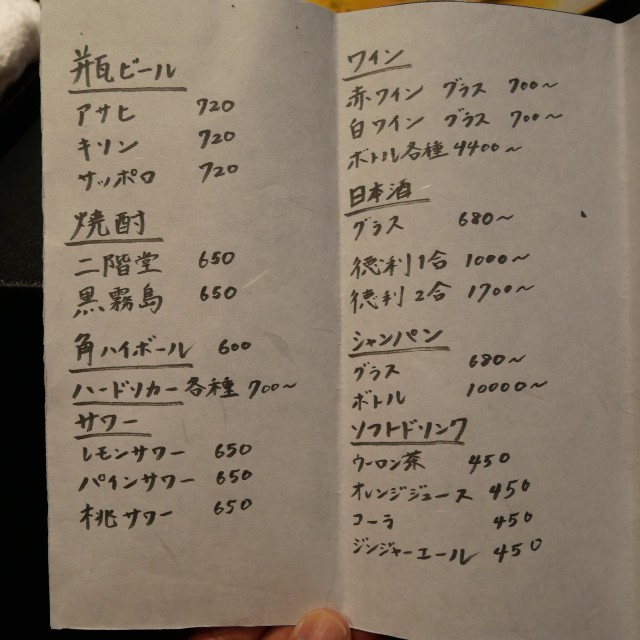 瓶ビール
アサヒ 720
キリン 720
サッポロ 720
焼酎
二階堂 650
黒霧島 650
角ハイボール 600
ハードリカー 各種 700～
サワー
レモンサワー 650
パインサワー 650
桃サワー 650
ワイン
赤ワイン グラス 700～
白ワイン グラス 700～
ボトル各種 4400～
日本酒
グラス 680～
徳利1合 1000～
徳利2合 1700～
シャンパン
グラス 680～
ボトル 10000～
ソフトドリンク
ウーロン茶 450
オレンジジュース 450
コーラ 450
ジンジャーエール 450